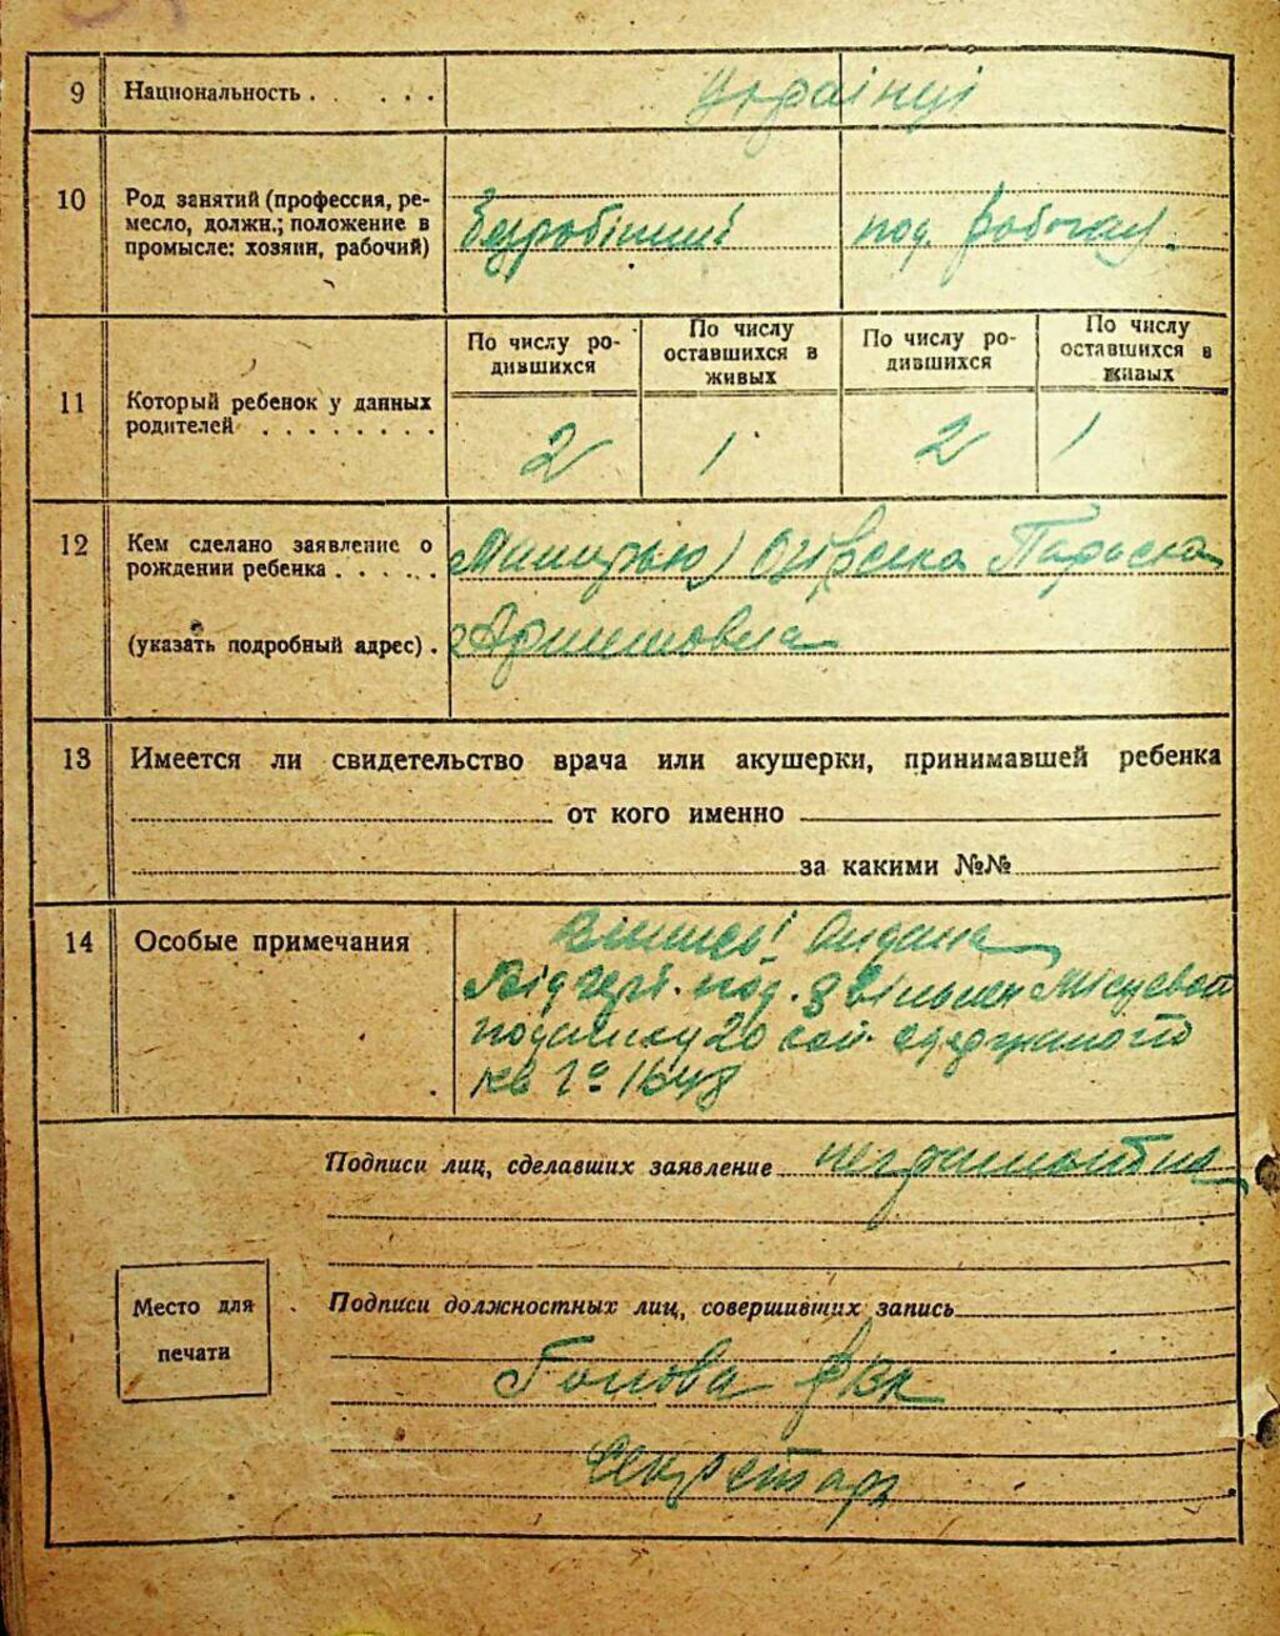 9 Национальность . . . . . Українці
10 Род занятий (профессия, ре-
месло, должн.; положение в
промысле: хозяин, рабочий)
Безробітний под. робочих.
11 Который ребенок у данных
родителей . . . . . . . .
По числу ро-
дившихся
По числу
оставшихся в
живых
По числу ро-
дившихся
По числу
оставшихся в
живых
2 1 2 1
12 Кем сделано заявление о
рождении ребенка . . . . .
(указать подробный адрес) .
Параска
13 Имеется ли свидетельство врача или акушерки, принимавшей ребенка
от кого именно
за какими №№
14 Особые примечания .
Від под. звільнен Місцевой
20 одержаного
кв 1648
Подписи лиц, сделавших заявление неграмотна
Место для
печати
Подписи должностных лиц, совершивших запись
Голова
Секретарь